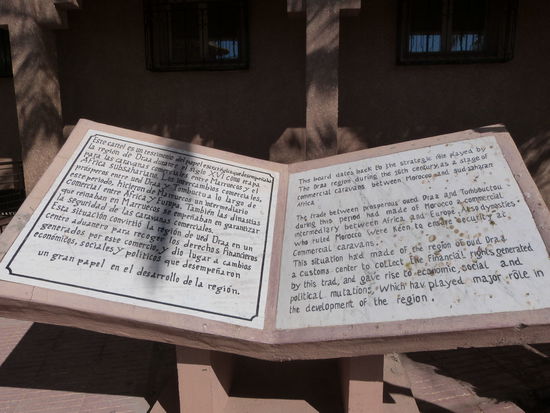 Este cartel es un testimonio del papel estratégico que desempeñó
la región de Draa durante el siglo XVI como etapa
para las caravanas comerciales entre Marruecos y el
África subsahariana. Los intercambios comerciales,
prósperos entre ued Draa y Tombuctu a lo largo de
este período, hicieron de Marruecos un intermediario
comercial entre África y Europa. También las dinastías
que reinaban en Marruecos se empeñaban en garantizar
la seguridad de las caravanas comerciales.
Esta situación convirtió la región de ued Draa en un
centro aduanero para recoger los derechos financieros
generados por este comercio y dio lugar a cambios
económicos, sociales y políticos que desempeñaron
un gran papel en el desarrollo de la región.
The board dates back to the strategic role played by
The Draa region during the 16th century as a stage of
commercial caravans between Morocco and sudaharan
Africa
The trade between prosperous oued Draa and Tombuctou
during this period had made of Morocco a commercial
intermediary between Africa and Europe. Also dynasties
who ruled Morocco were keen to ensure security at
Commercial caravans.
This situation had made of the region of oued Draa
a Customs center to collect the financial rights generated
by this trad, and gave rise to economic, social and
political mutations, which hav played major rôle in
the development of the region.